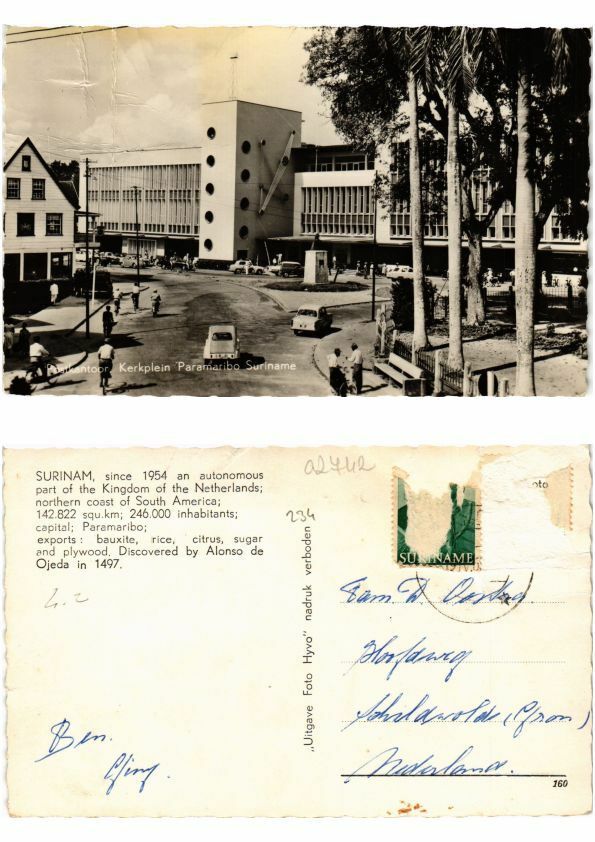 Postkantoor, Kerkplein Paramaribo Suriname
SURINAM, since 1954 an autonomous
part of the Kingdom of the Netherlands;
northern coast of South America;
142.822 squ.km; 246.000 inhabitants;
capital; Paramaribo;
exports : bauxite, rice, citrus, sugar
and plywood. Discovered by Alonso de
Ojeda in 1497.
02742
234
„Uitgave Foto Hyvo" nadruk verboden
oto
SURINAME
Fam. D.
Hoofdweg
Schildwolde (Gron)
Nederland.
Ben.
160